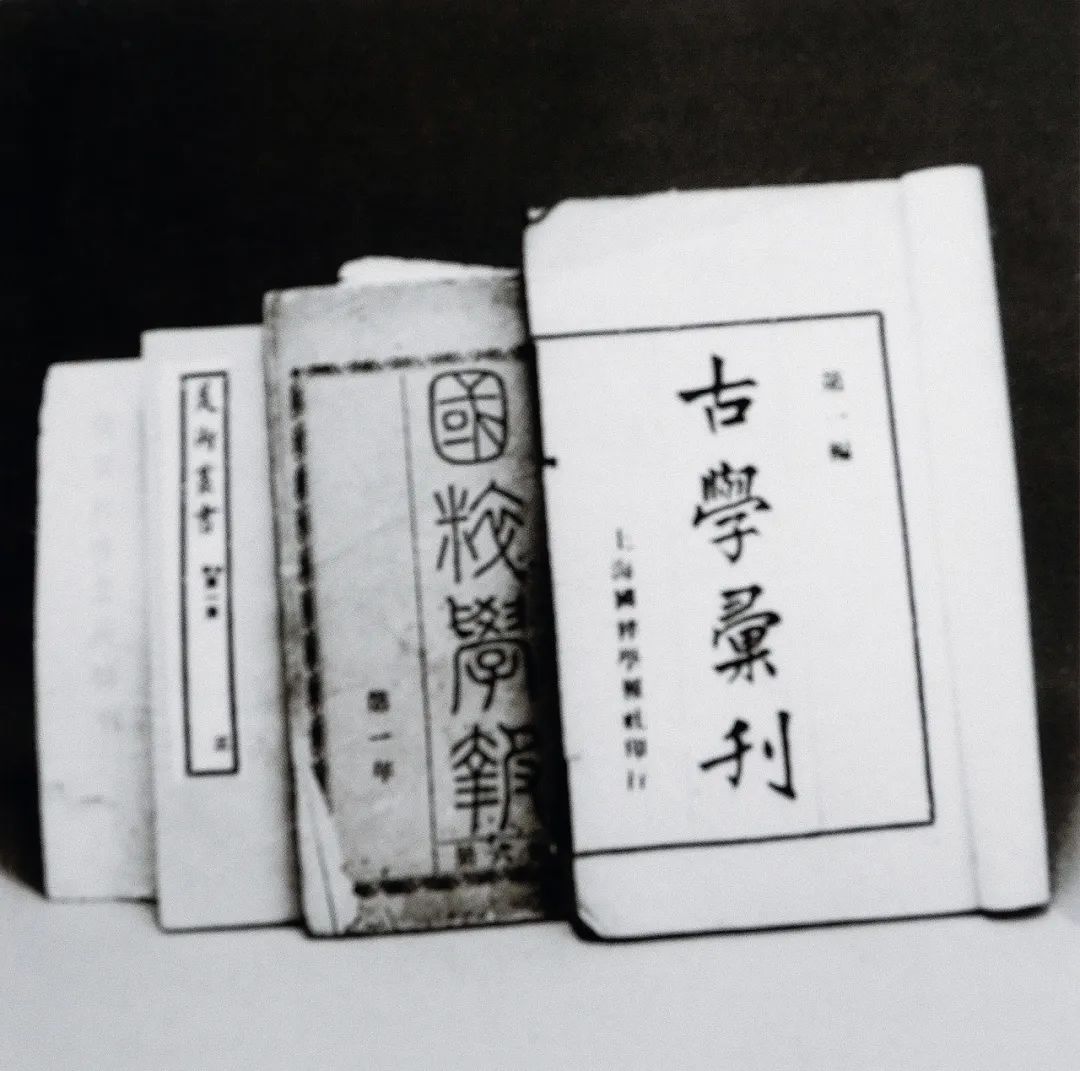 第一編
古學彙刊
上海國粹學報社印行
國粹學報
第一年
美術叢書